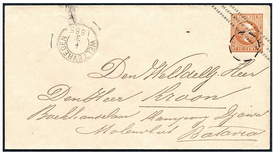 WELTEVREDEN
1885
Den WelEdelg Heer
Den Heer Kroon
Kampong Djawa
Molenvliet Batavia